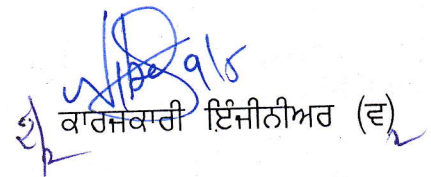 ਕਾਰਜਕਾਰੀ ਇੰਜੀਨੀਅਰ (ਵ)